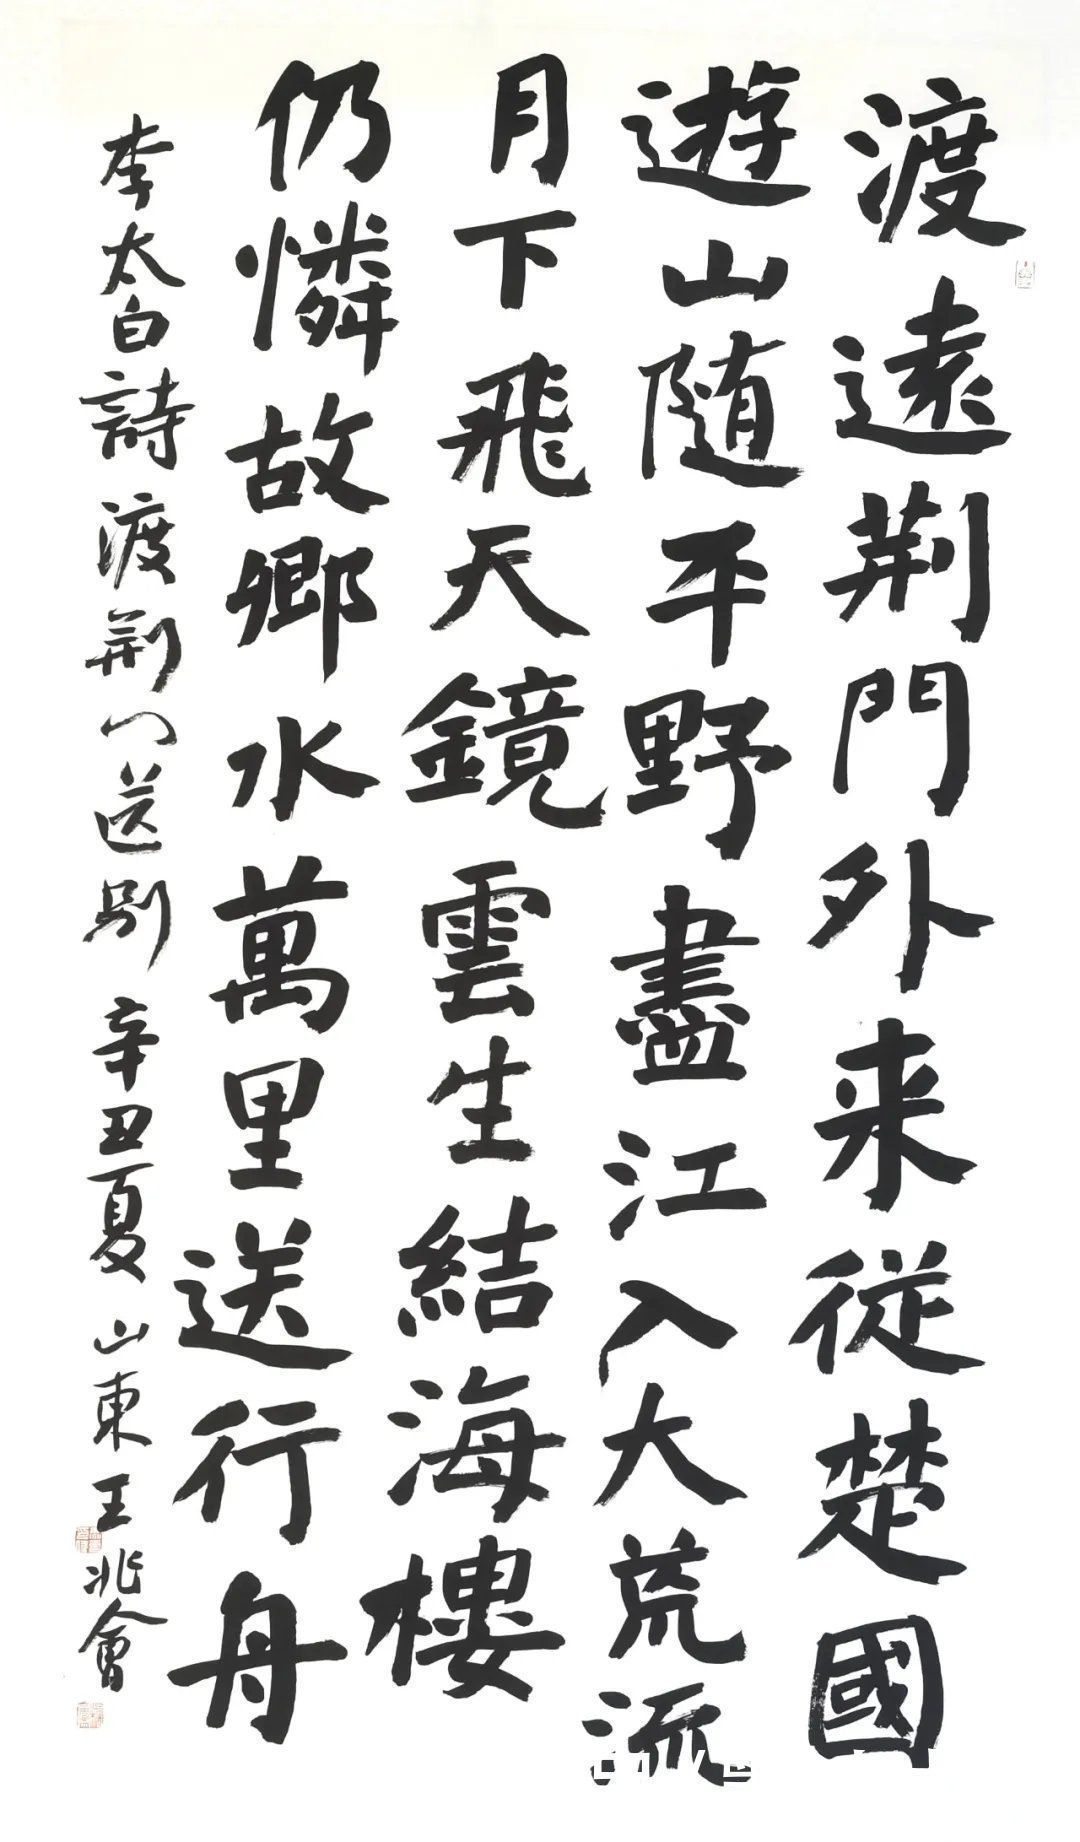 渡遠荆門外来從楚國
遊山随平野盡江入大荒流
月下飛天鏡雲生結海樓
仍憐故鄉水萬里送行舟
李太白詩渡荆门送别辛丑夏山東王兆會